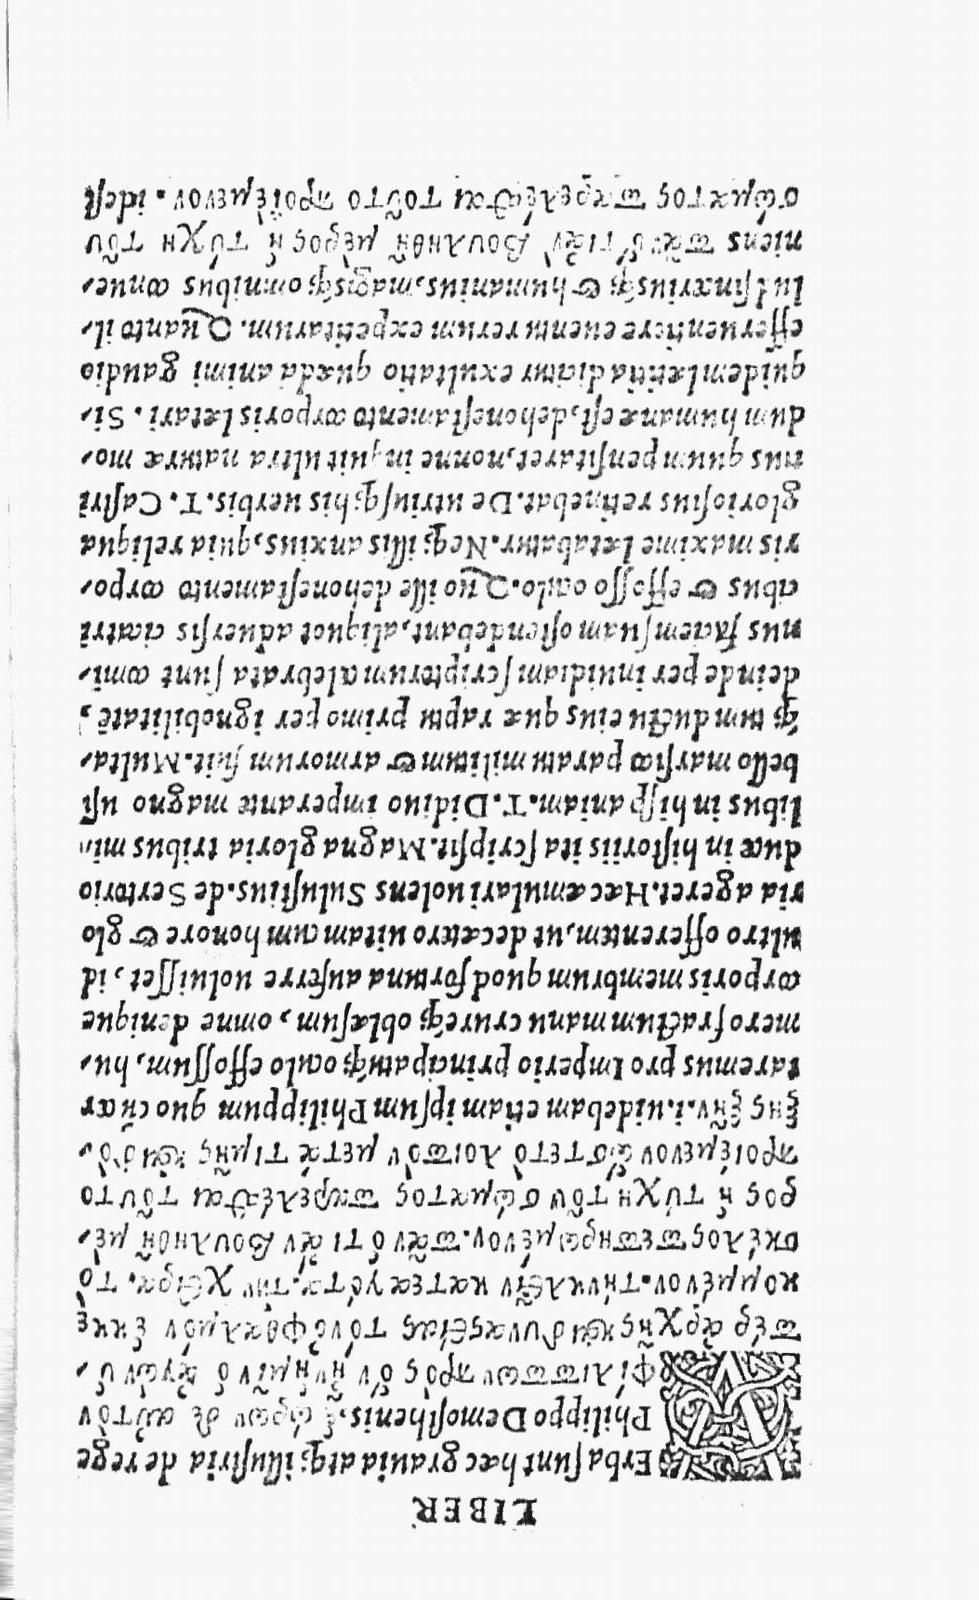 LIBER
VErba sunt hæc grauia atq; illustria de rege
Philippo Demosthenis. ἑώρων δὲ αὐτὸν
φίλιππον πρὸς ὃν ἦν ἡμῖν ὁ ἀγὼν ὑ-
πὲρ ἀρχῆς καὶ δυναστείας τὸν ὀφθαλμὸν ἐκκε
κομμένον. τὴν κλεῖν κατεαγότα. τὴν χεῖρα. τὸ
σκέλος πεπηρωμένον. πᾶν ὅ τι ἂν βουληθῇ μέ-
ρος ἡ τύχη τοῦ σώματος παρελέσθαι τοῦτο
προϊέμενον ὥστε τὸ λοιπὸν μετὰ τιμῆς καὶ δό-
ξης ζῆν. i. uidebam etiam ipsum Philippum quo cũ cer
taremus pro Imperio principatuq; oculo effossum, hu-
mero fractum manu crureq; oblæsum, omne denique
corporis membrum quod fortuna auferre uoluisset, id
ultro offerentem, ut decætero uitam cum honore & glo
ria ageret. Hæc æmulari uolens Salustius. de Sertorio
duce in historiis ita scripsit. Magna gloria tribus mi-
litibus in hispaniam. T. Didino imperante magno usi
bello marsico paratu militum & armorum fuit. Multa-
q; tum ductu eius quæ rapta primo per ignobilitatē,
deinde per inuidiam scriptorum celebrata sunt comi-
nus faciem suam ostendebant, aliquot aduersis cicatri
cibus & effosso oculo. Quo ille dehonestamento corpo-
ris maxime lætabatur. Neq; illis anxius, quia reliqua
gloriosius retinebat. De utriusq; his uerbis. T. Castri
tius quum pensitaret, nonne inquit ultra naturæ mo-
dum humanæ est, dehonestamento corporis lætari. Si-
quidem lætitia dicitur exultatio quædã animi gaudio
efferuentiore euentu rerum expetitarum. Quanto il-
lud sinxeriusq; & humanius, magisq; omnibus conue-
niens πᾶν ὅ τι ἂν βουληθῇ μέρος ἡ τύχη τοῦ
σώματος παρελέσθαι τοῦτο προϊέμενον. idest